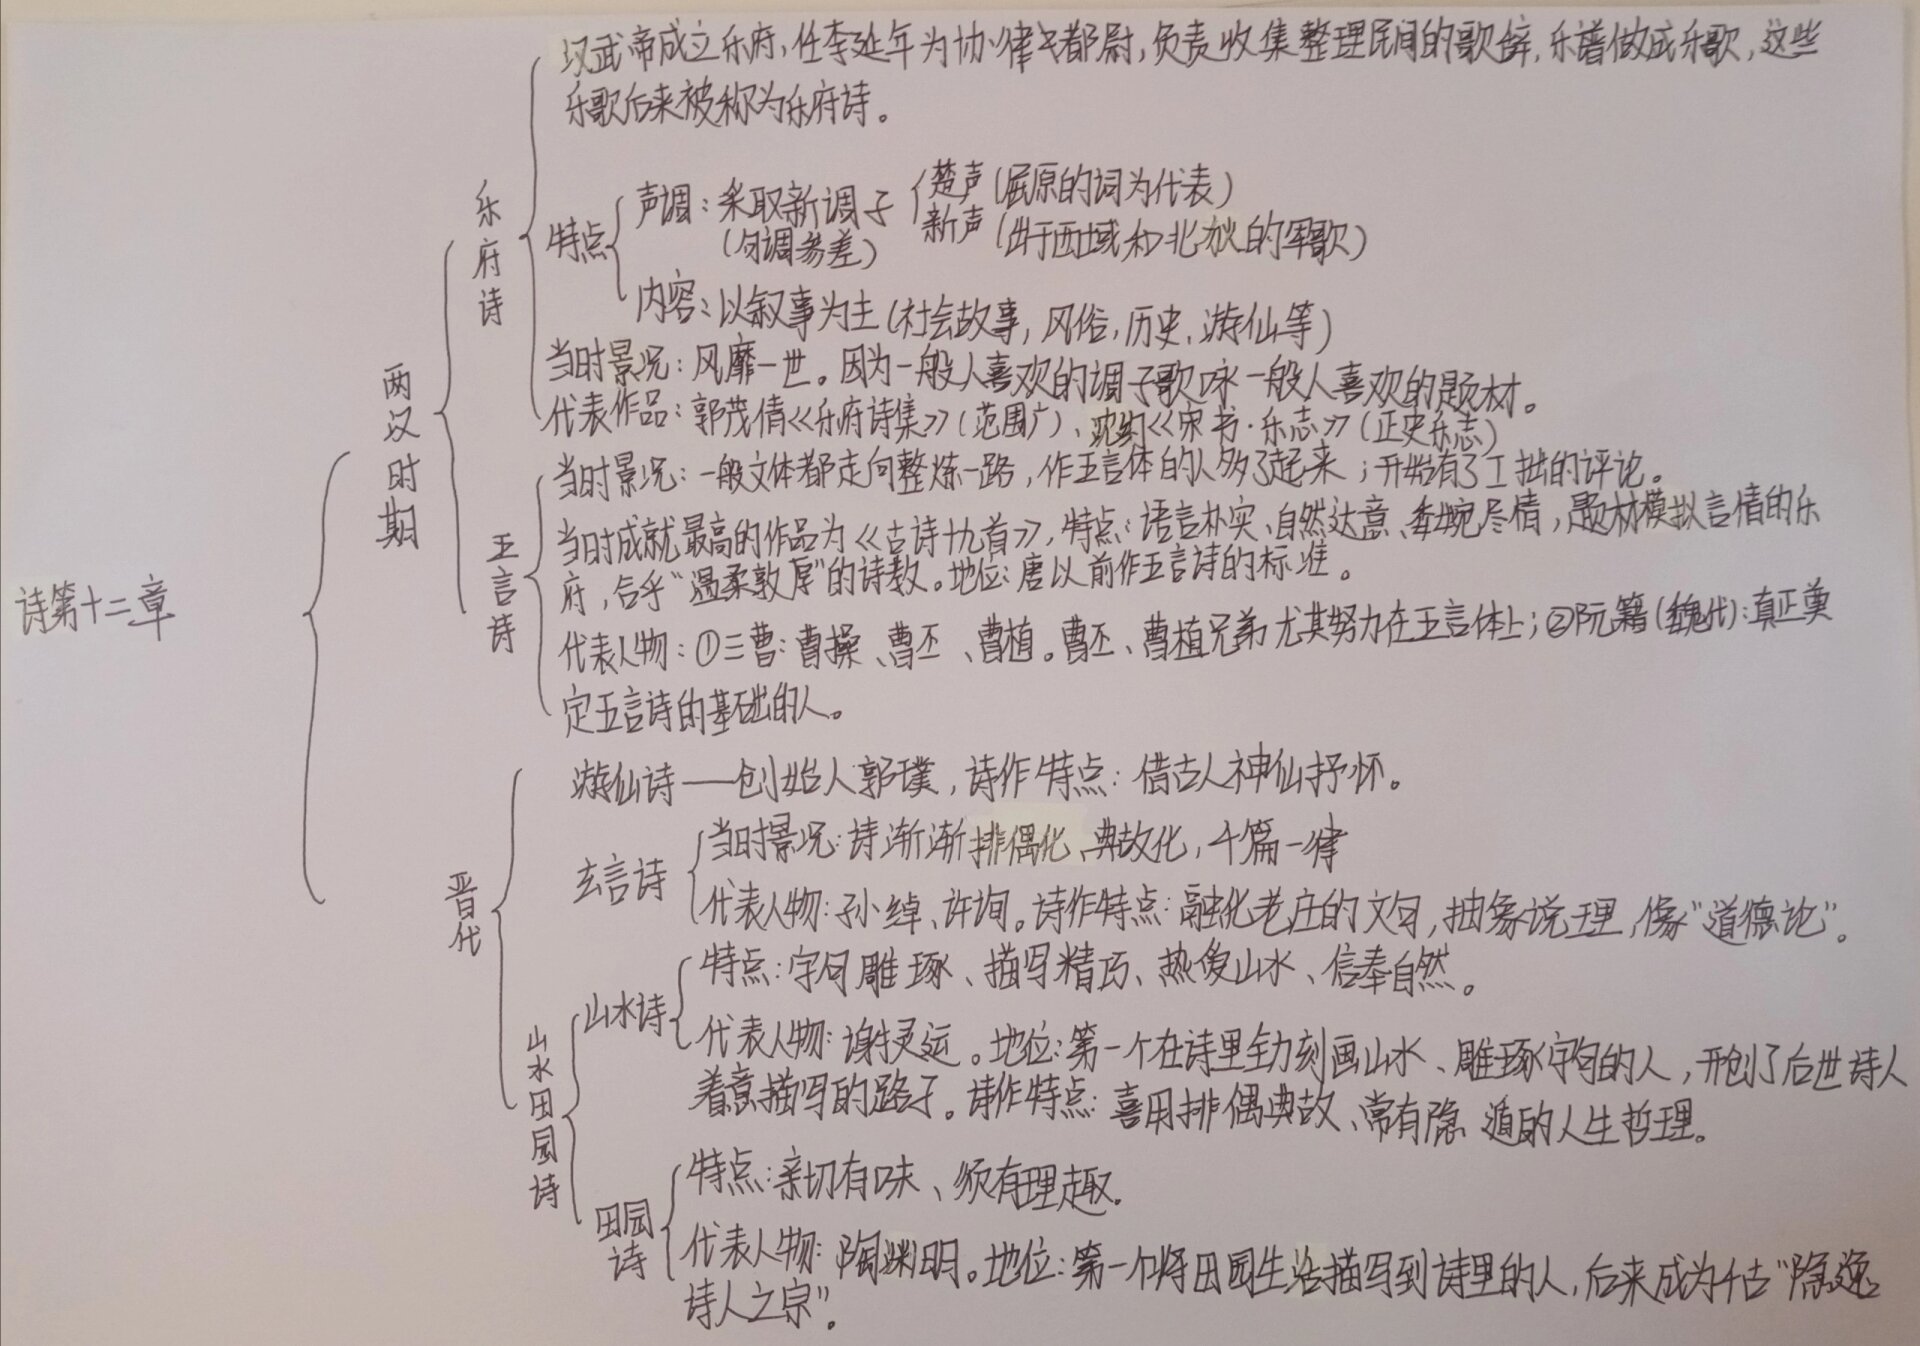 诗第十二章
两汉时期
乐府诗
汉武帝成立乐府,任李延年为协律都尉,负责收集整理民间的歌辞,乐谱做成乐歌,这些
乐歌后来被称为乐府诗。
特点
声调:采取新调子
(句调参差)
楚声(屈原的词为代表)
新声(出于西域和北狄的军歌)
内容:以叙事为主(社会故事,风俗,历史,游仙等)
当时景况:风靡一世。因为一般人喜欢的调子歌咏一般人喜欢的题材。
代表作品:郭茂倩《乐府诗集》(范围广)、沈约《宋书·乐志》(正史乐志)
五言诗
当时景况:一般文体都走向整炼一路,作五言体的人多了起来;开始有了工拙的评论。
当时成就最高的作品为《古诗十九首》,特点:语言朴实、自然达意、委婉尽情,题材模拟言情的乐
府,合乎“温柔敦厚”的诗教。地位:唐以前作五言诗的标准。
代表人物:①三曹:曹操、曹丕、曹植。曹丕、曹植兄弟尤其努力在五言体上;②阮籍(魏代):真正奠
定五言诗的基础的人。
晋代
游仙诗——创始人郭璞,诗作特点:借古人神仙抒怀。
玄言诗
当时景况:诗渐渐排偶化、典故化,千篇一律
代表人物:孙绰、许询。诗作特点:融化老庄的文句,抽象说理,像“道德论”。
山水田园诗
山水诗
特点:字句雕琢、描写精巧、热爱山水、信奉自然。
代表人物:谢灵运。地位:第一个在诗里全力刻画山水、雕琢字句的人,开创了后世诗人
着意描写的路子。诗作特点:喜用排偶典故、常有隐遁的人生哲理。
田园诗
特点:亲切有味、须有理趣。
代表人物:陶渊明。地位:第一个将田园生活描写到诗里的人,后来成为千古“隐逸
诗人之宗”。